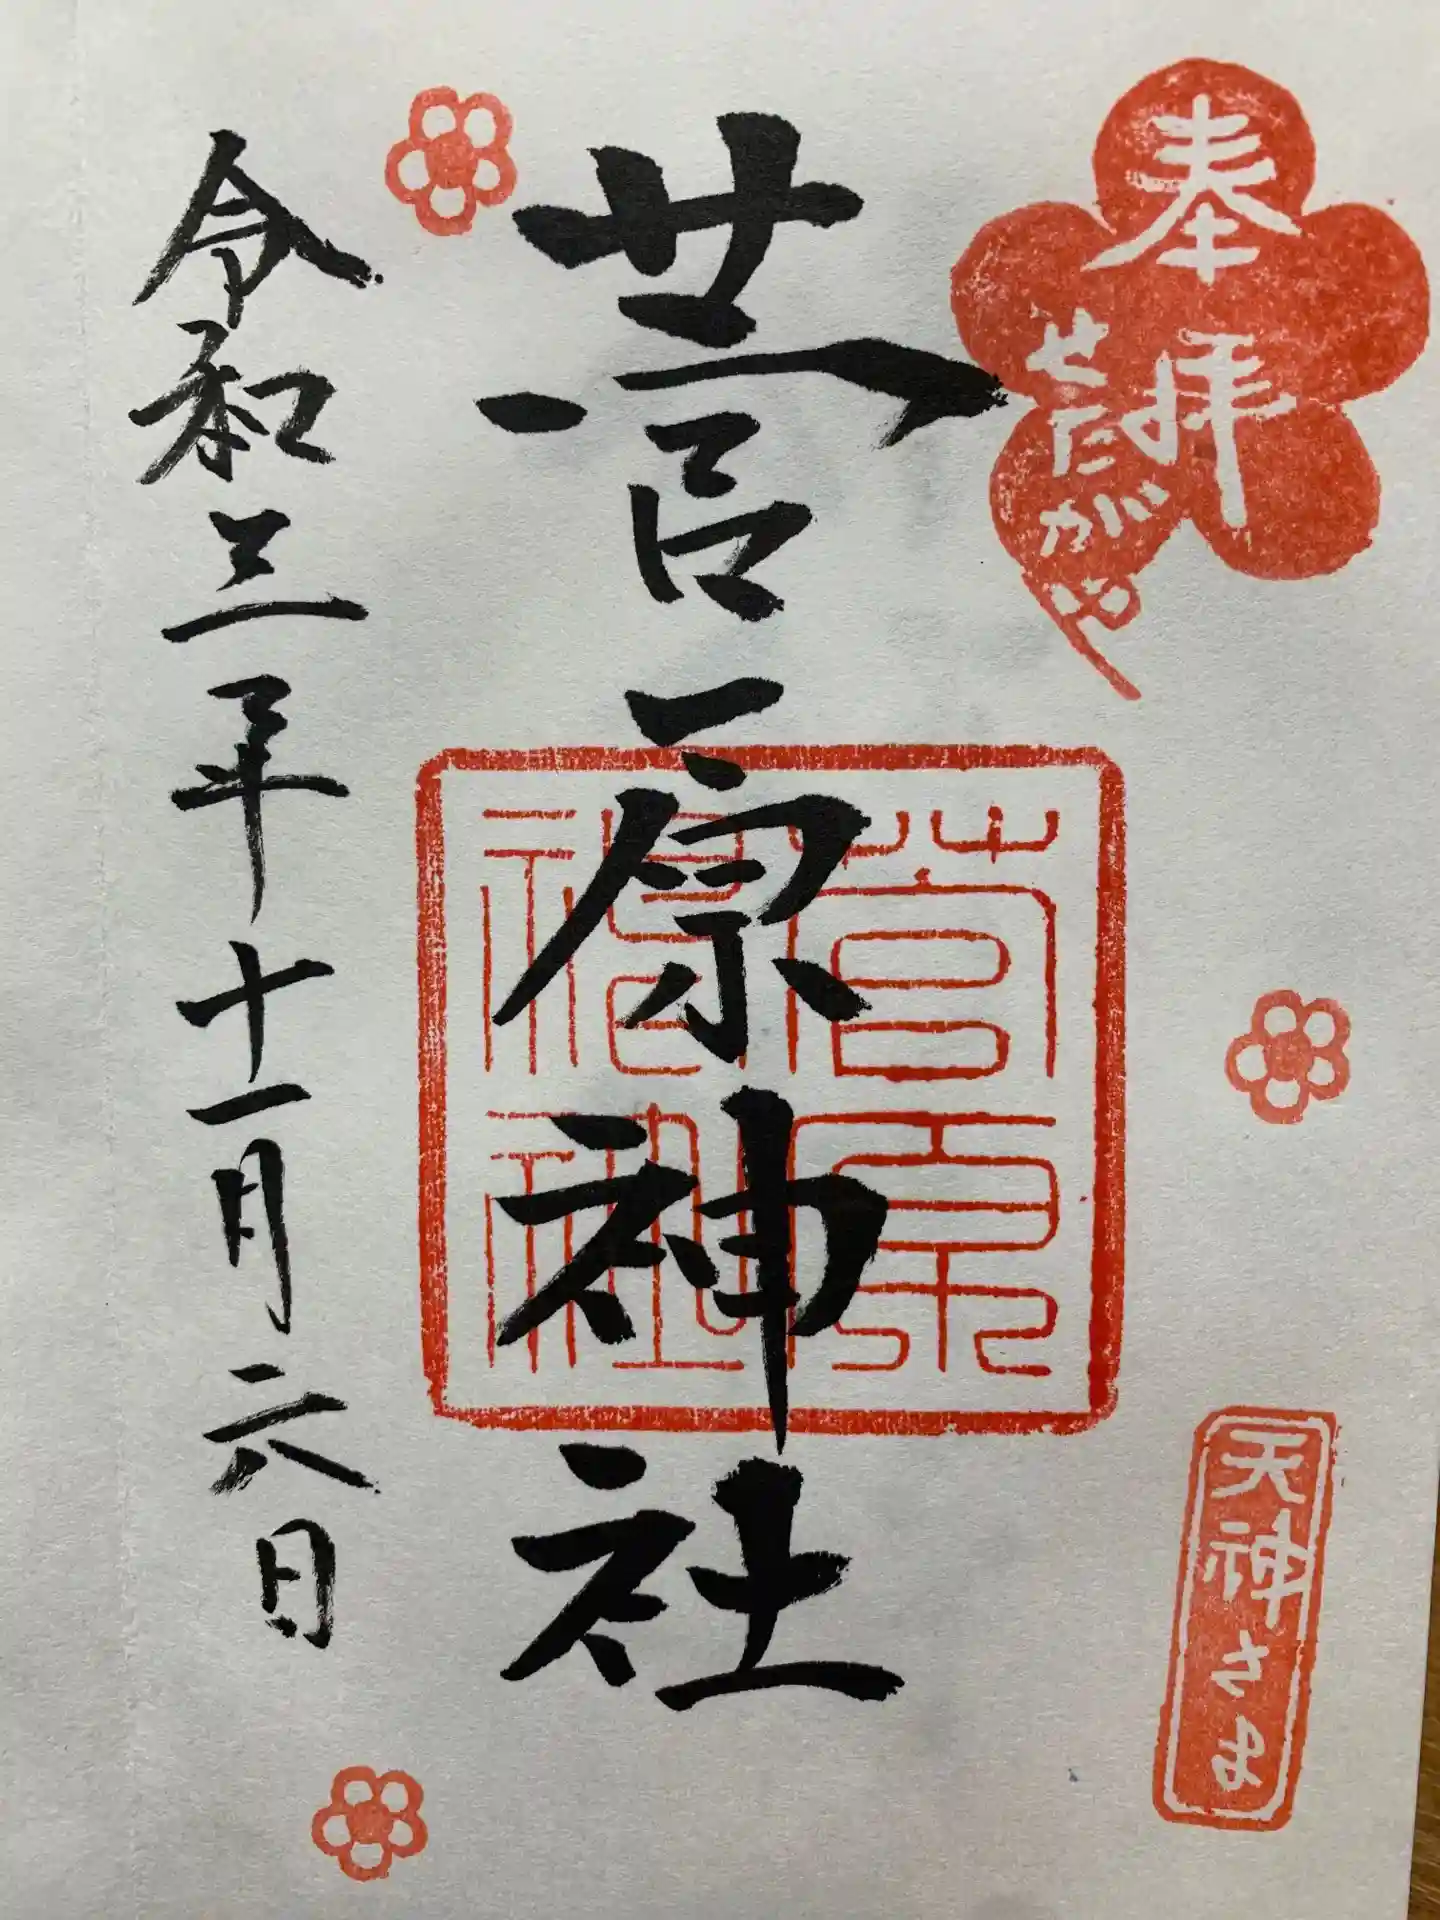 奉拝
せたがや
天神さま
菅原神社
菅原神社
令和三年十一月六日